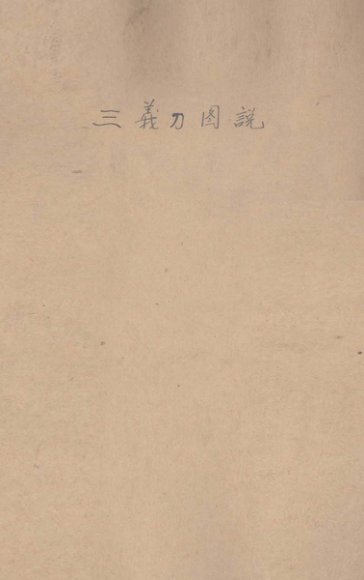 三義刀图說